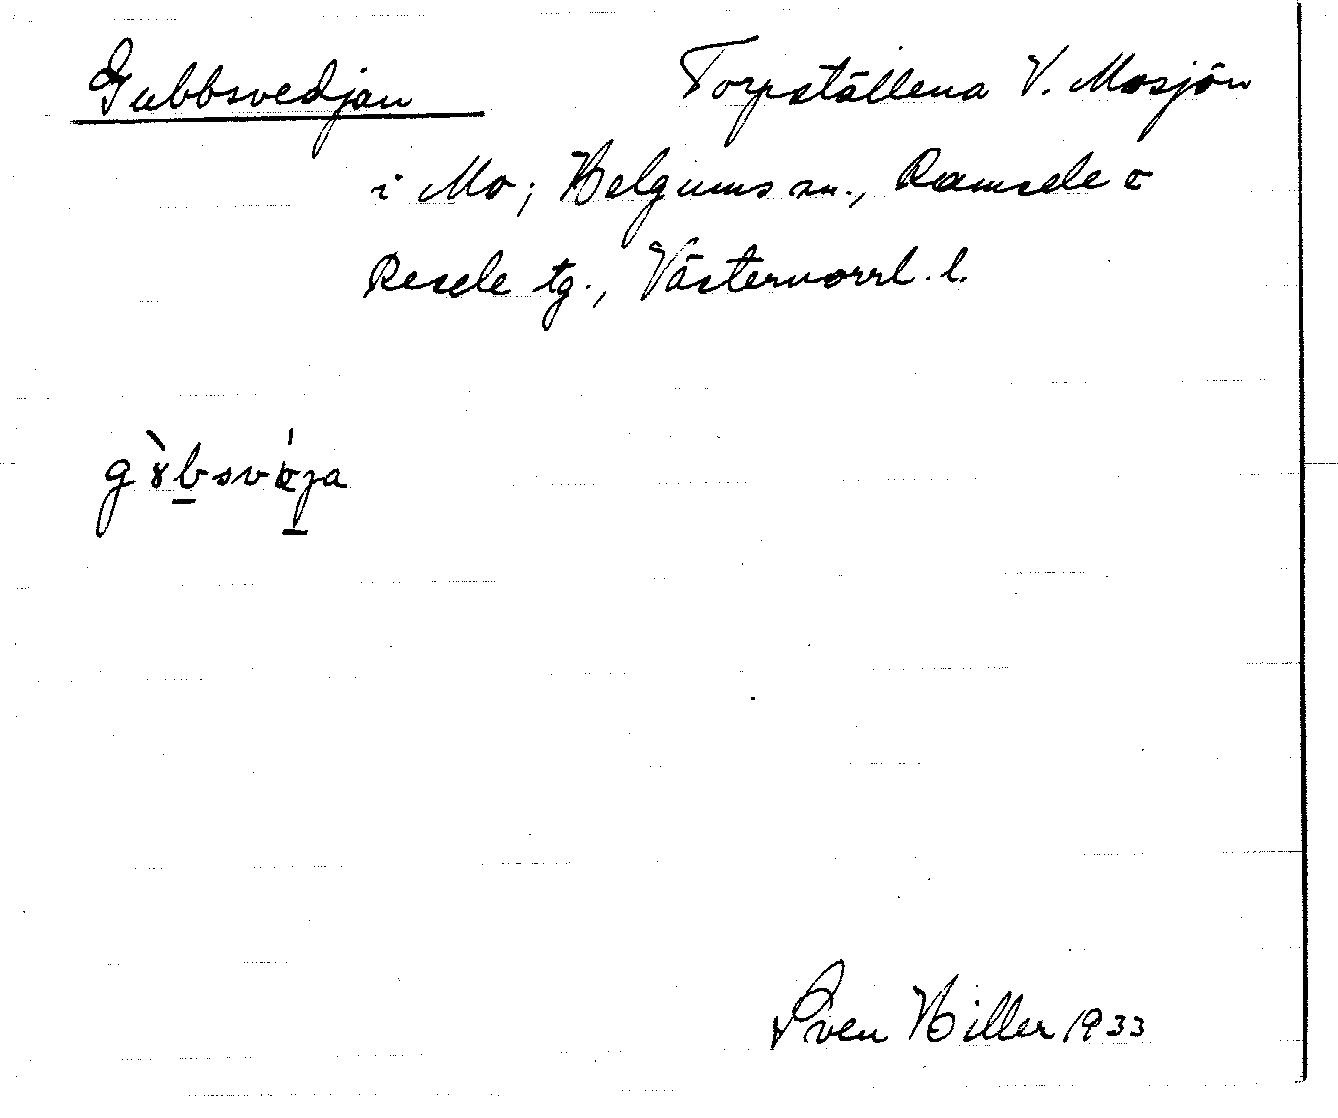 Gubbsvedjan Torpställena V. Mosjön
i Mo; Helgums sn., Ramsele o
Resele tg., Västernorrl. l.
gɤ̀bsvɑ́ja
Sven Hiller 1933